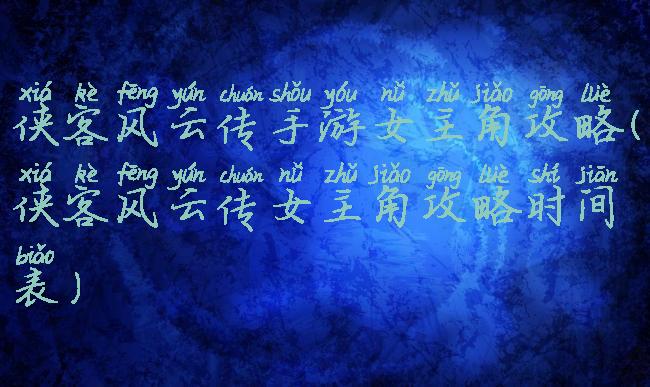 xiá kè fēng yún chuán shǒu yóu nǚ zhǔ jiǎo gōng lüè
侠客风云传手游女主角攻略(
xiá kè fēng yún chuán nǚ zhǔ jiǎo gōng lüè shí jiān
侠客风云传女主角攻略时间
biǎo
表)